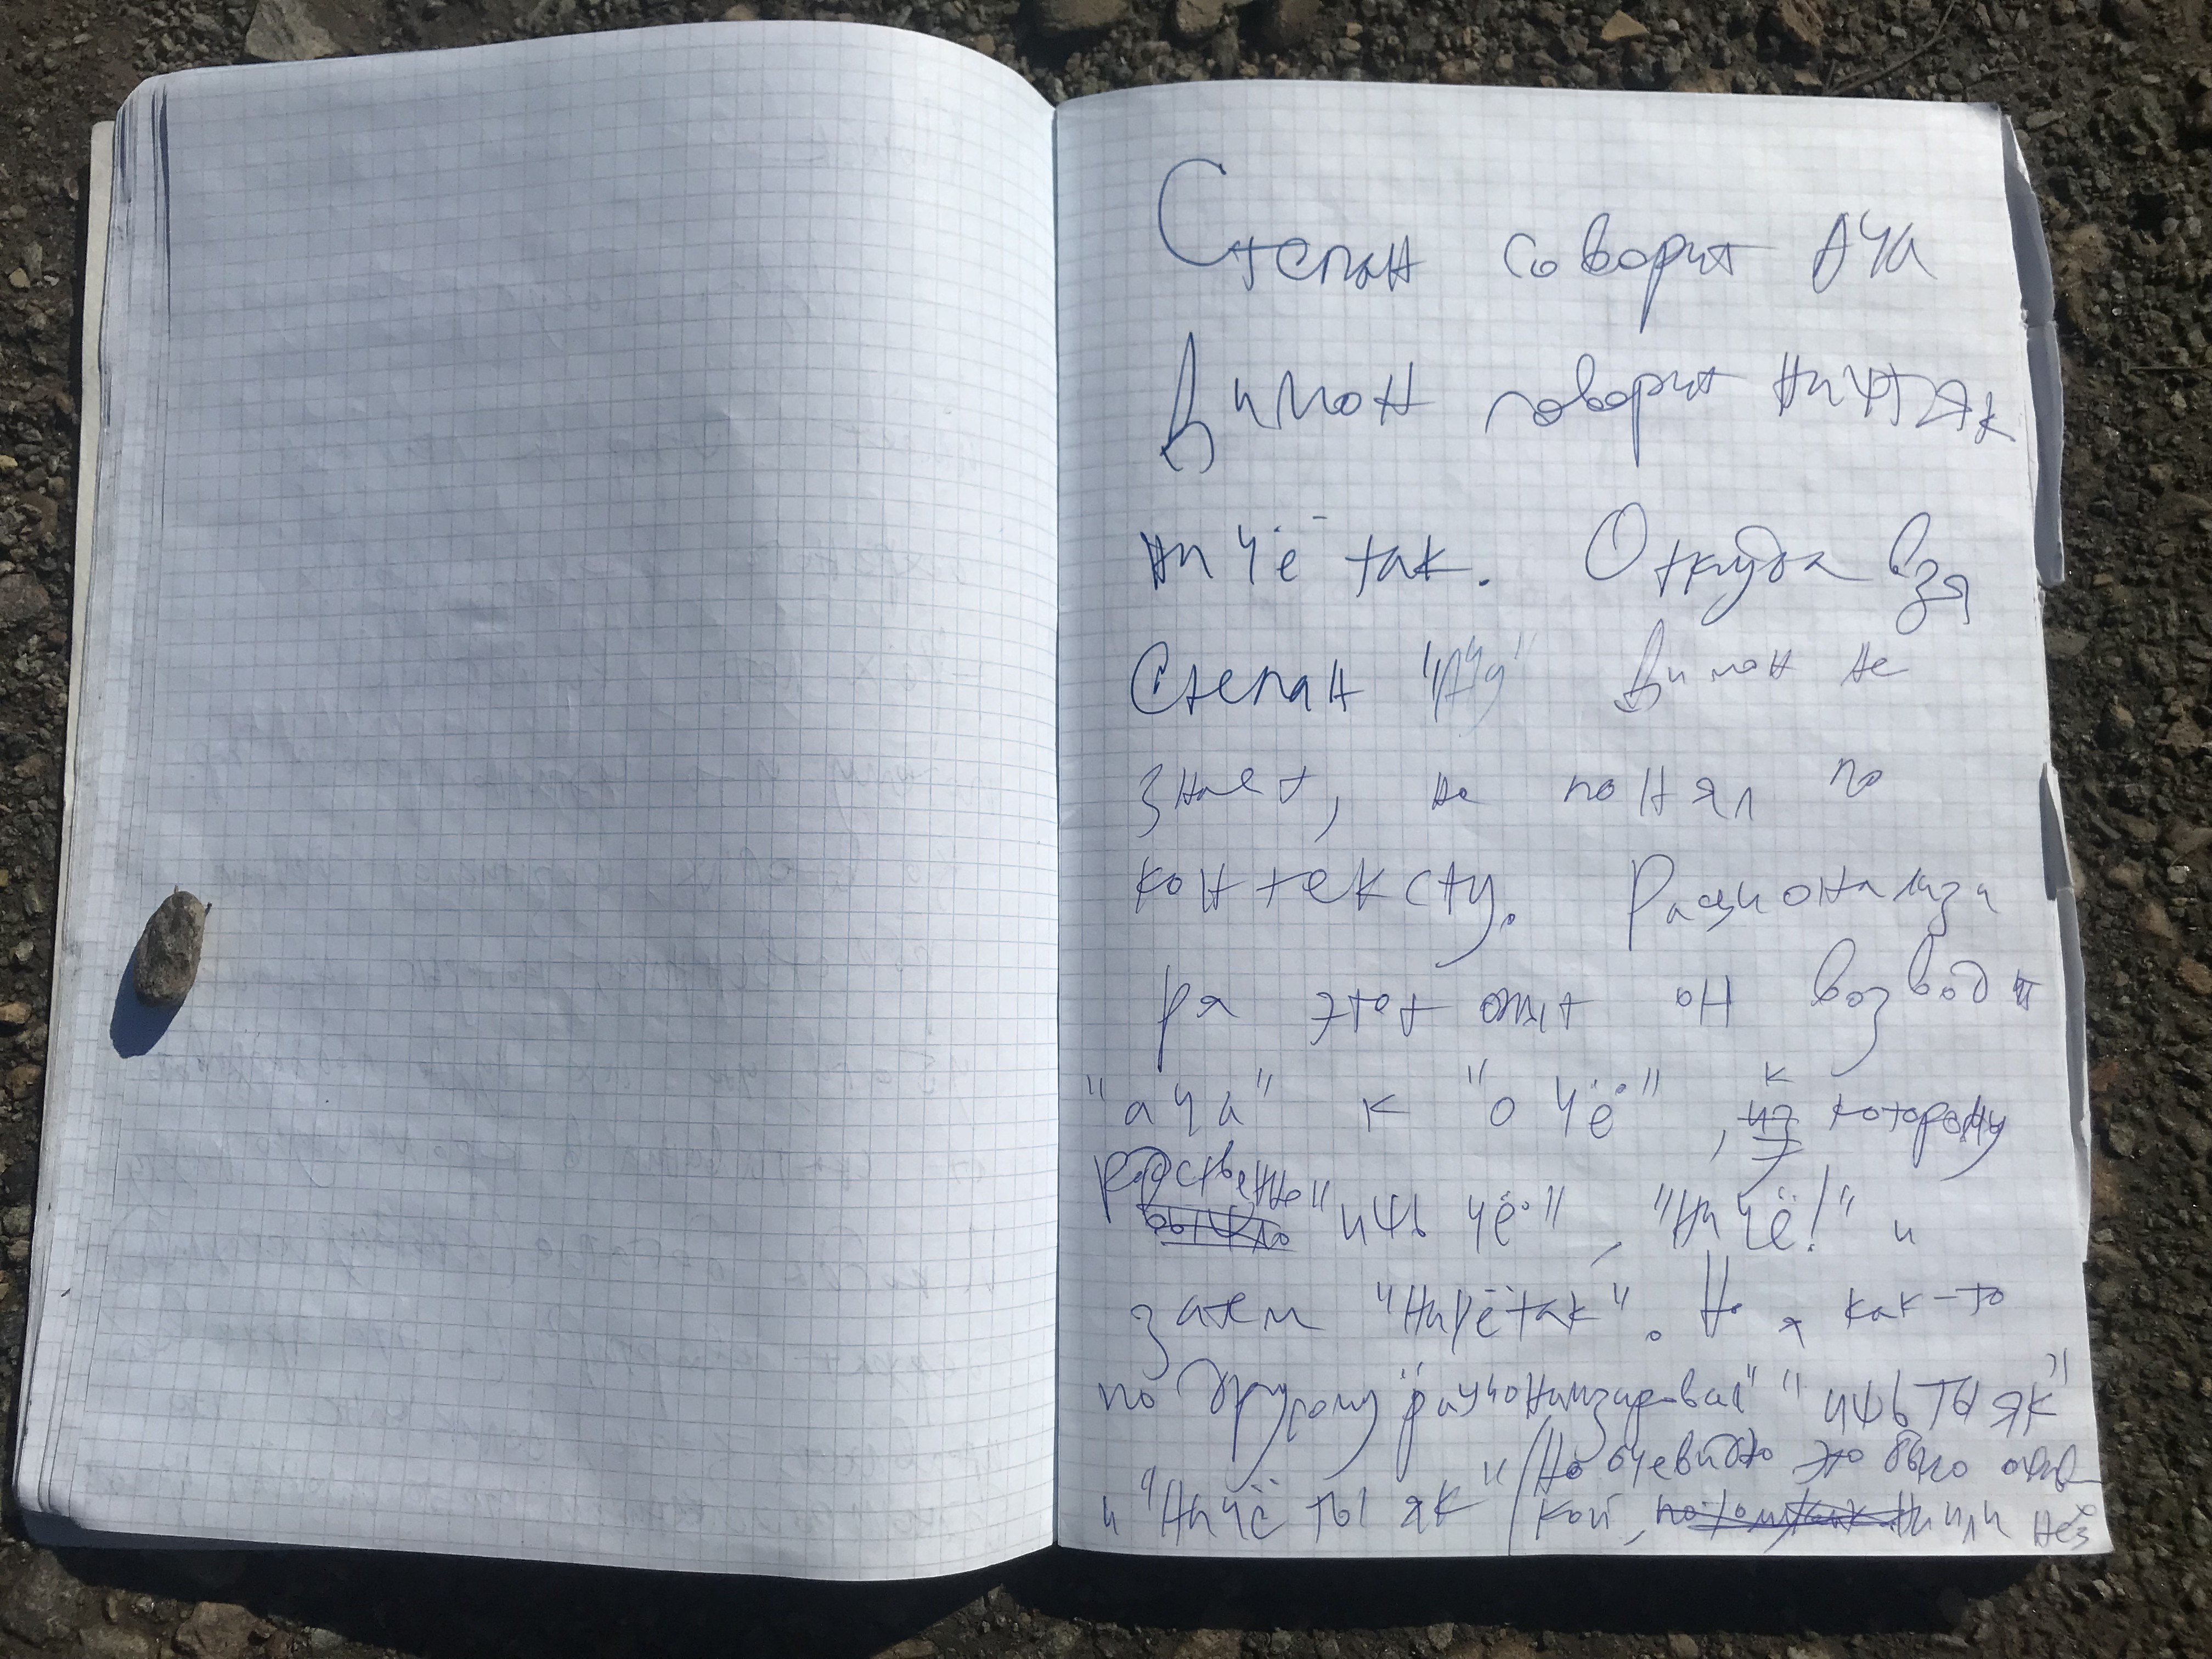 Степан говорит Ача
Димон говорит ништяк
ни чё так. Откуда взя
Степан "Ача" Димон не
знает, не понял по
контексту. Рационализи
ря этот опыт он возводит
"ача" к "о чё", к которому
родственно "ишь чё", "Ни чё!" и
затем "Ничётак". Но я как-то
по другому "рационализировал" "ишь ты як"
и "Ни чё ты як" Но очевидно это было ошиб
кой, потому как ни или